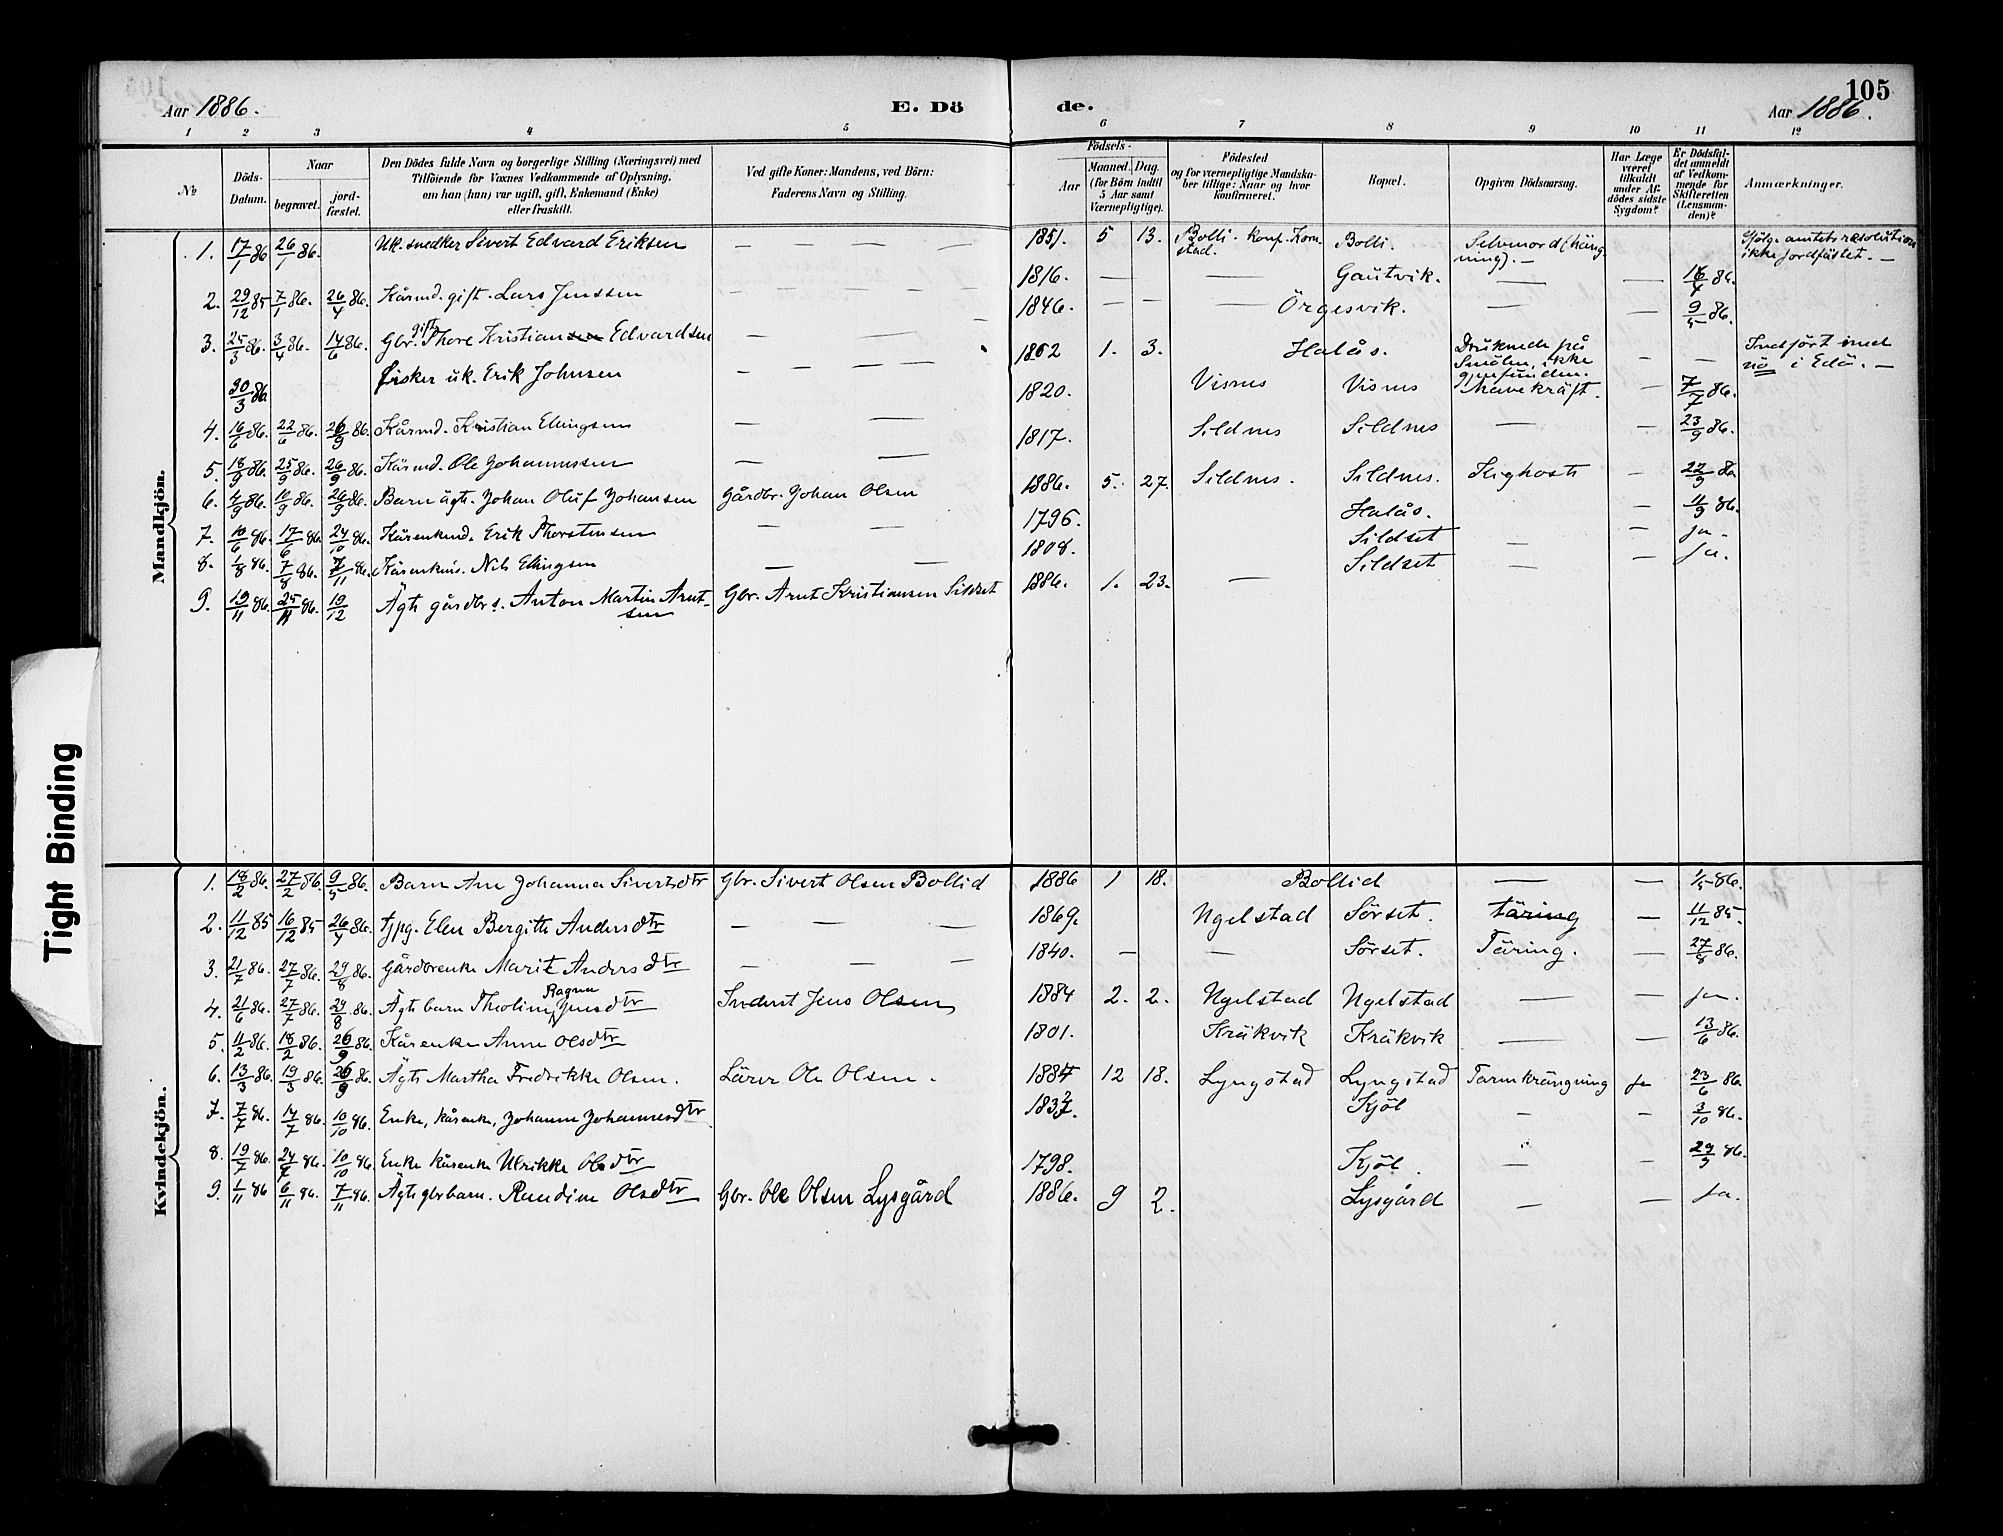 105
Aar 1886.
E. Dö
de.
Aar 1886.
1 2 3 4 5 6 7 8 9 10 11 12
№
Döds-Datum.
Naar
begravet.
jord-fæstet.
Den Dödes fulde Navn og borgerlige Stilling (Næringsvei) med
Tilföiende for Voxnes Vedkommende af Oplysning,
om han (hun) var ugift, gift, Enkemand (Enke)
eller fraskilt.
Ved gifte Koner: Mandens, ved Börn:
Faderens Navn og Stilling.
Födsels-
Aar
Maaned. Dag.
(for Börn indtil
5 Aar samt
Værnepligtige).
Födested
og for værnepligtige Mandska-
ber tillige: Naar og hvor
konfirmeret.
Bopæl.
Opgiven Dödsaarsag.
Har Læge
været
tilkaldt
under Af-
dödes sidste
Sygdom?
Er Dödsfal-
det anmeldt
af Vedkom-
mende for
Skifteretten
(Lensman-
den)?
Anmærkninger.
Mandkjön.
1. 17/1 86 26/1 86. Uk. snedker Sivert Edvard Eriksen — — — — 1851. 5 13. Bolli. konf. Korn-
stad. Bolli. Selvmord (häng-
ning). — Ifölge amtets resolution
ikke jordfästet. —
2. 29/12 85 7/1 86. 26/4 86. Kårmd. gift. Lars Jenssen — — — — 1816. — — Gautvik. — — 16/4 86.
3. 25/3 86. 3/4 86. 14/6 86. Gbr. gift Thore Kristiansen Edvardsen — — 1846. — — Örgesvik. — — 9/5 86.
30/3 86 Fisker uk. Erik Johnsen — — 1862 1. 3. Halås. Druknede på
Smölen, ikke
gjenfunden. — — Indfört med
nö i Edö. —
4. 16/6 86. 22/6 86. 26/9 86. Kårmd. Kristian Ellingsen — — 1820. Visnes Visnes Mavekräft. — 7/7 86.
5. 18/9 86. 25/9 86. 26/9 86. Kårmd. Ole Johannessen — — 1817. Sildnes Sildnes — — 23/9 86.
6. 4/9 86. 10/9 86. 26/9 86. Barn ägt. Johan Oluf Johansen Gårdbr. Johan Olsen 1886. 5. 27. Sildnes. Sildnes. Kighoste — 22/9 86
7. 10/6 86. 17/6 86. 24/10 86. Kårenkmd. Erik Thorstensen — — 1796. Halås. — — 11/9 86.
8. 1/8 86. 7/8 86. 7/11 86. Kårenkms. Nils Ellingsen — — 1808. Sildset — — Ja.
9. 19/11 86. 25/11 86. 19/12 Ägte gårdbr s. Anton Martin Arnt-
sen Gbr. Arnt Kristiansen Sildset 1886. 1. 23. — Sildset — — Ja.
Kvindekjön.
1. 18/2 86. 27/2 86. 9/5 86. Barn Ane Johanna Sivertsdtr Gbr. Sivert Olsen Bollid 1886 1 18. Bollid — — 1/5 86.
2. 11/12 85 16/12 85 26/4 86. tjpg. Elen Bergitte Andersdtr — — — 1869. Ngelstad Sörset. täring — 11/12 85.
3. 21/7 86. 27/7 86. 29/8 86. Gårdbrenke Marit Andersdtr — — — 1840. — — Sörset. Täring. — 27/8 86.
4. 21/6 86. 27/7 86. 29/8 86. Ägte barn Tholine Ragna Jensdtr Inderst Jens Olsen 1884 2. 2. Ngelstad Ngelstad — — Ja.
5. 11/2 86. 18/2 86. 26/9 86. Kårenke Anne Olsdtr 1801. Kråkvik Kråkvik — — 13/6 86.
6. 13/3 86. 19/3 86. 26/9 86. Ägte Martha Fredrikke Olsen. Lärer Ole Olsen. 1884 12 18. Lyngstad Lyngstad Tarmkrängning Ja 23/6 86.
7. 7/7 86. 14/7 86. 10/10 86. Enke, kårenke, Johanne Johannesdtr Kjöl — — 3/10 86.
8. 19/7 86. 24/7 86. 10/10 86. Enke kårenke Ulrikke Olsdtr 1798. Kjöl. — — 29/9 86.
9. 1/11 86 6/11 86. 7/11 86. Ägte gbrbarn. Randine Olsdtr Gbr. Ole Olsen Lysgård 1886. 9 2. Lysgård — — Ja.
Tight Binding